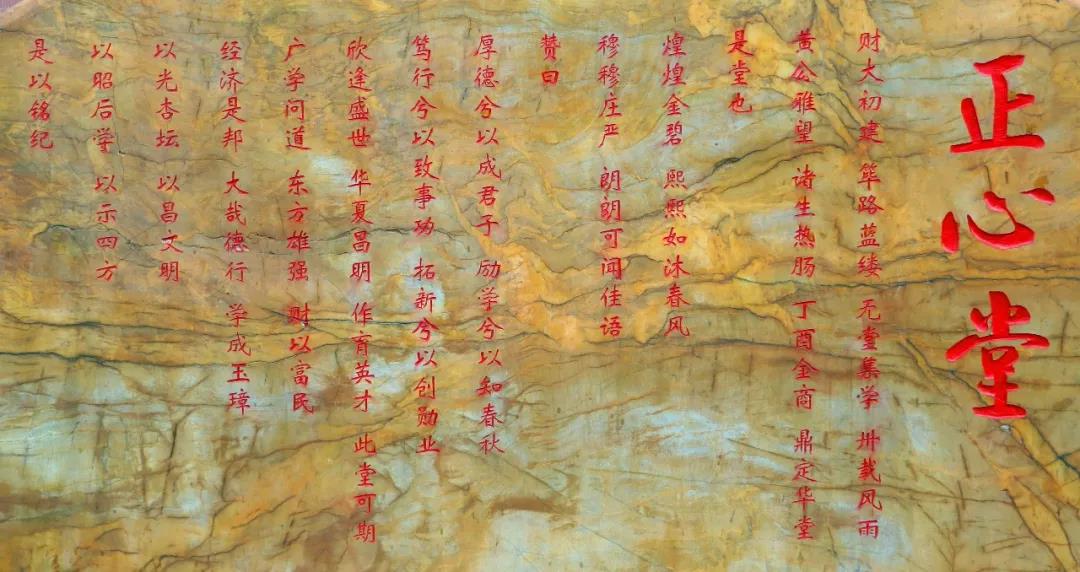 正心堂
财大初建 筚路蓝缕 无堂集学 卅载风雨
黄公雅望 诸生热肠 丁酉金商 鼎定华堂
是堂也
煌煌金碧 熙熙如沐春风
穆穆庄严 朗朗可闻佳语
赞曰
厚德兮以成君子 励学兮以知春秋
笃行兮以致事功 拓新兮以创勋业
欣逢盛世 华夏昌明 作育英才 此堂可期
广学问道 东方雄强 财以富民
经济是邦 大哉德行 学成玉璋
以光杏坛 以昌文明
以昭后学 以示四方
是以铭纪